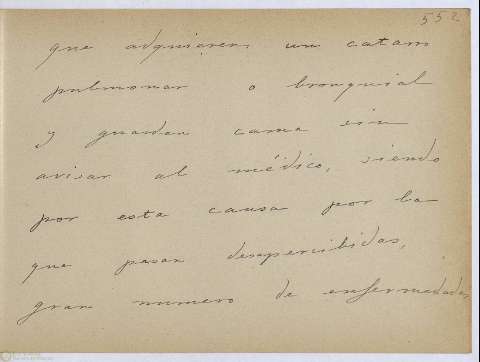 552
que adquieren un catarro
pulmonar o bronquial
y guardan cama sin
avisar al médico, siendo
por esta causa por la
que pasan desapercibidas,
gran numero de enfermedades